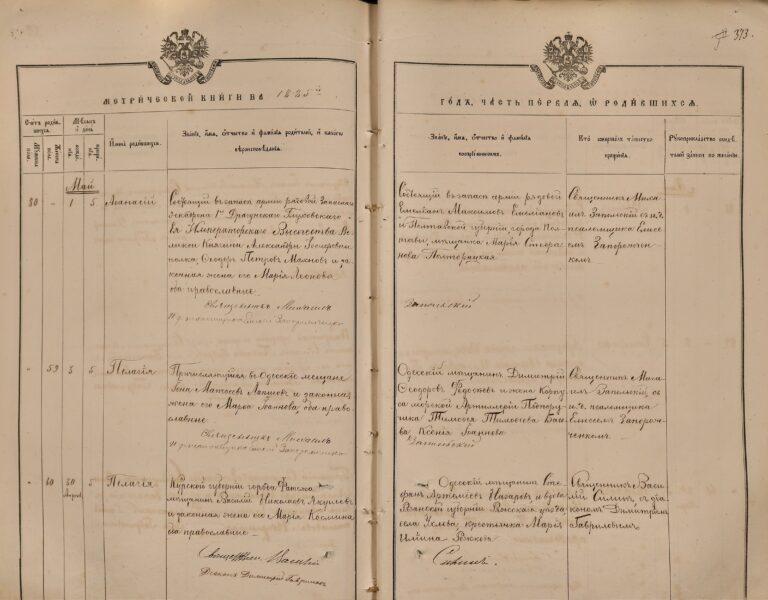 373.
МЕТРИЧЕСКОЙ КНИГИ НА 1885
ГОДЪ, ЧАСТЬ ПЕРВАЯ, О РОДИВШИХСЯ.
Счетъ родив-
шихся.
Мѣсяцъ
и день.
Имена родившихся.
Званіе, имя, отчество и фамилія родителей, и какого
вѣроисповѣданія.
Званіе, имя, отчество и фамилія
воспріемниковъ.
Кто совершалъ таинство
крещенія.
Рукоприкладство свидѣ-
телей записи по желанію.
Май
30 - 1 5 Аѳанасій
Состоящій въ запасѣ арміи рядовой Запаснаго
эскадрона 1го Драгунскаго Глуховскаго
Ея Императорскаго Высочества Ве-
ликой Княгини Александры Іосифовны
полка, Ѳеодоръ Петровъ Махновъ и за-
конная жена его Марія Леонова
оба православные
Священникъ Михаилъ
Состоящій въ запасѣ арміи рядовой
Максимовъ
и Полтавской губерніи города Пол-
тавы, мѣщанка Марія Стефа-
нова Полторацкая
Запольскій
Священникъ Миха-
илъ Запольскій съ и. д.
псаломщика Елисе-
емъ Запорожчен-
комъ
" 59 3 5 Пелагія
Причисляющійся въ Одесскіе мѣщане
Матѳеевъ и законная
жена его Марѳа Іоаннова, оба право-
славные
Священникъ Михаилъ
Одесскій мѣщанинъ Димитрій
Ѳеодоровъ Ѳедосѣевъ и жена Корпу-
са морской Артиллеріи
Тимоѳея Тимоѳеева
Ксенія Іоаннова
Запольскій
Священникъ Миха-
илъ Запольскій съ
и. д. псаломщика
Елисеемъ Запорож-
ченкомъ
" 60 30 5 Пелагія
Апрѣля
Курской губерніи города Фатежа
мѣщанинъ Василій Николаевъ Якушевъ
и законная жена его Марія Космина
оба православные
Священникъ Василій
Діаконъ Димитрій Гавриловъ
Одесскій мѣщанинъ Сте-
фанъ Назаровъ и вдова
Рязанской губерніи уѣзда
села крестьянка Марія
Силинъ
Священникъ Васи-
лій Силинъ съ діа-
кономъ Димитріемъ
Гавриловымъ